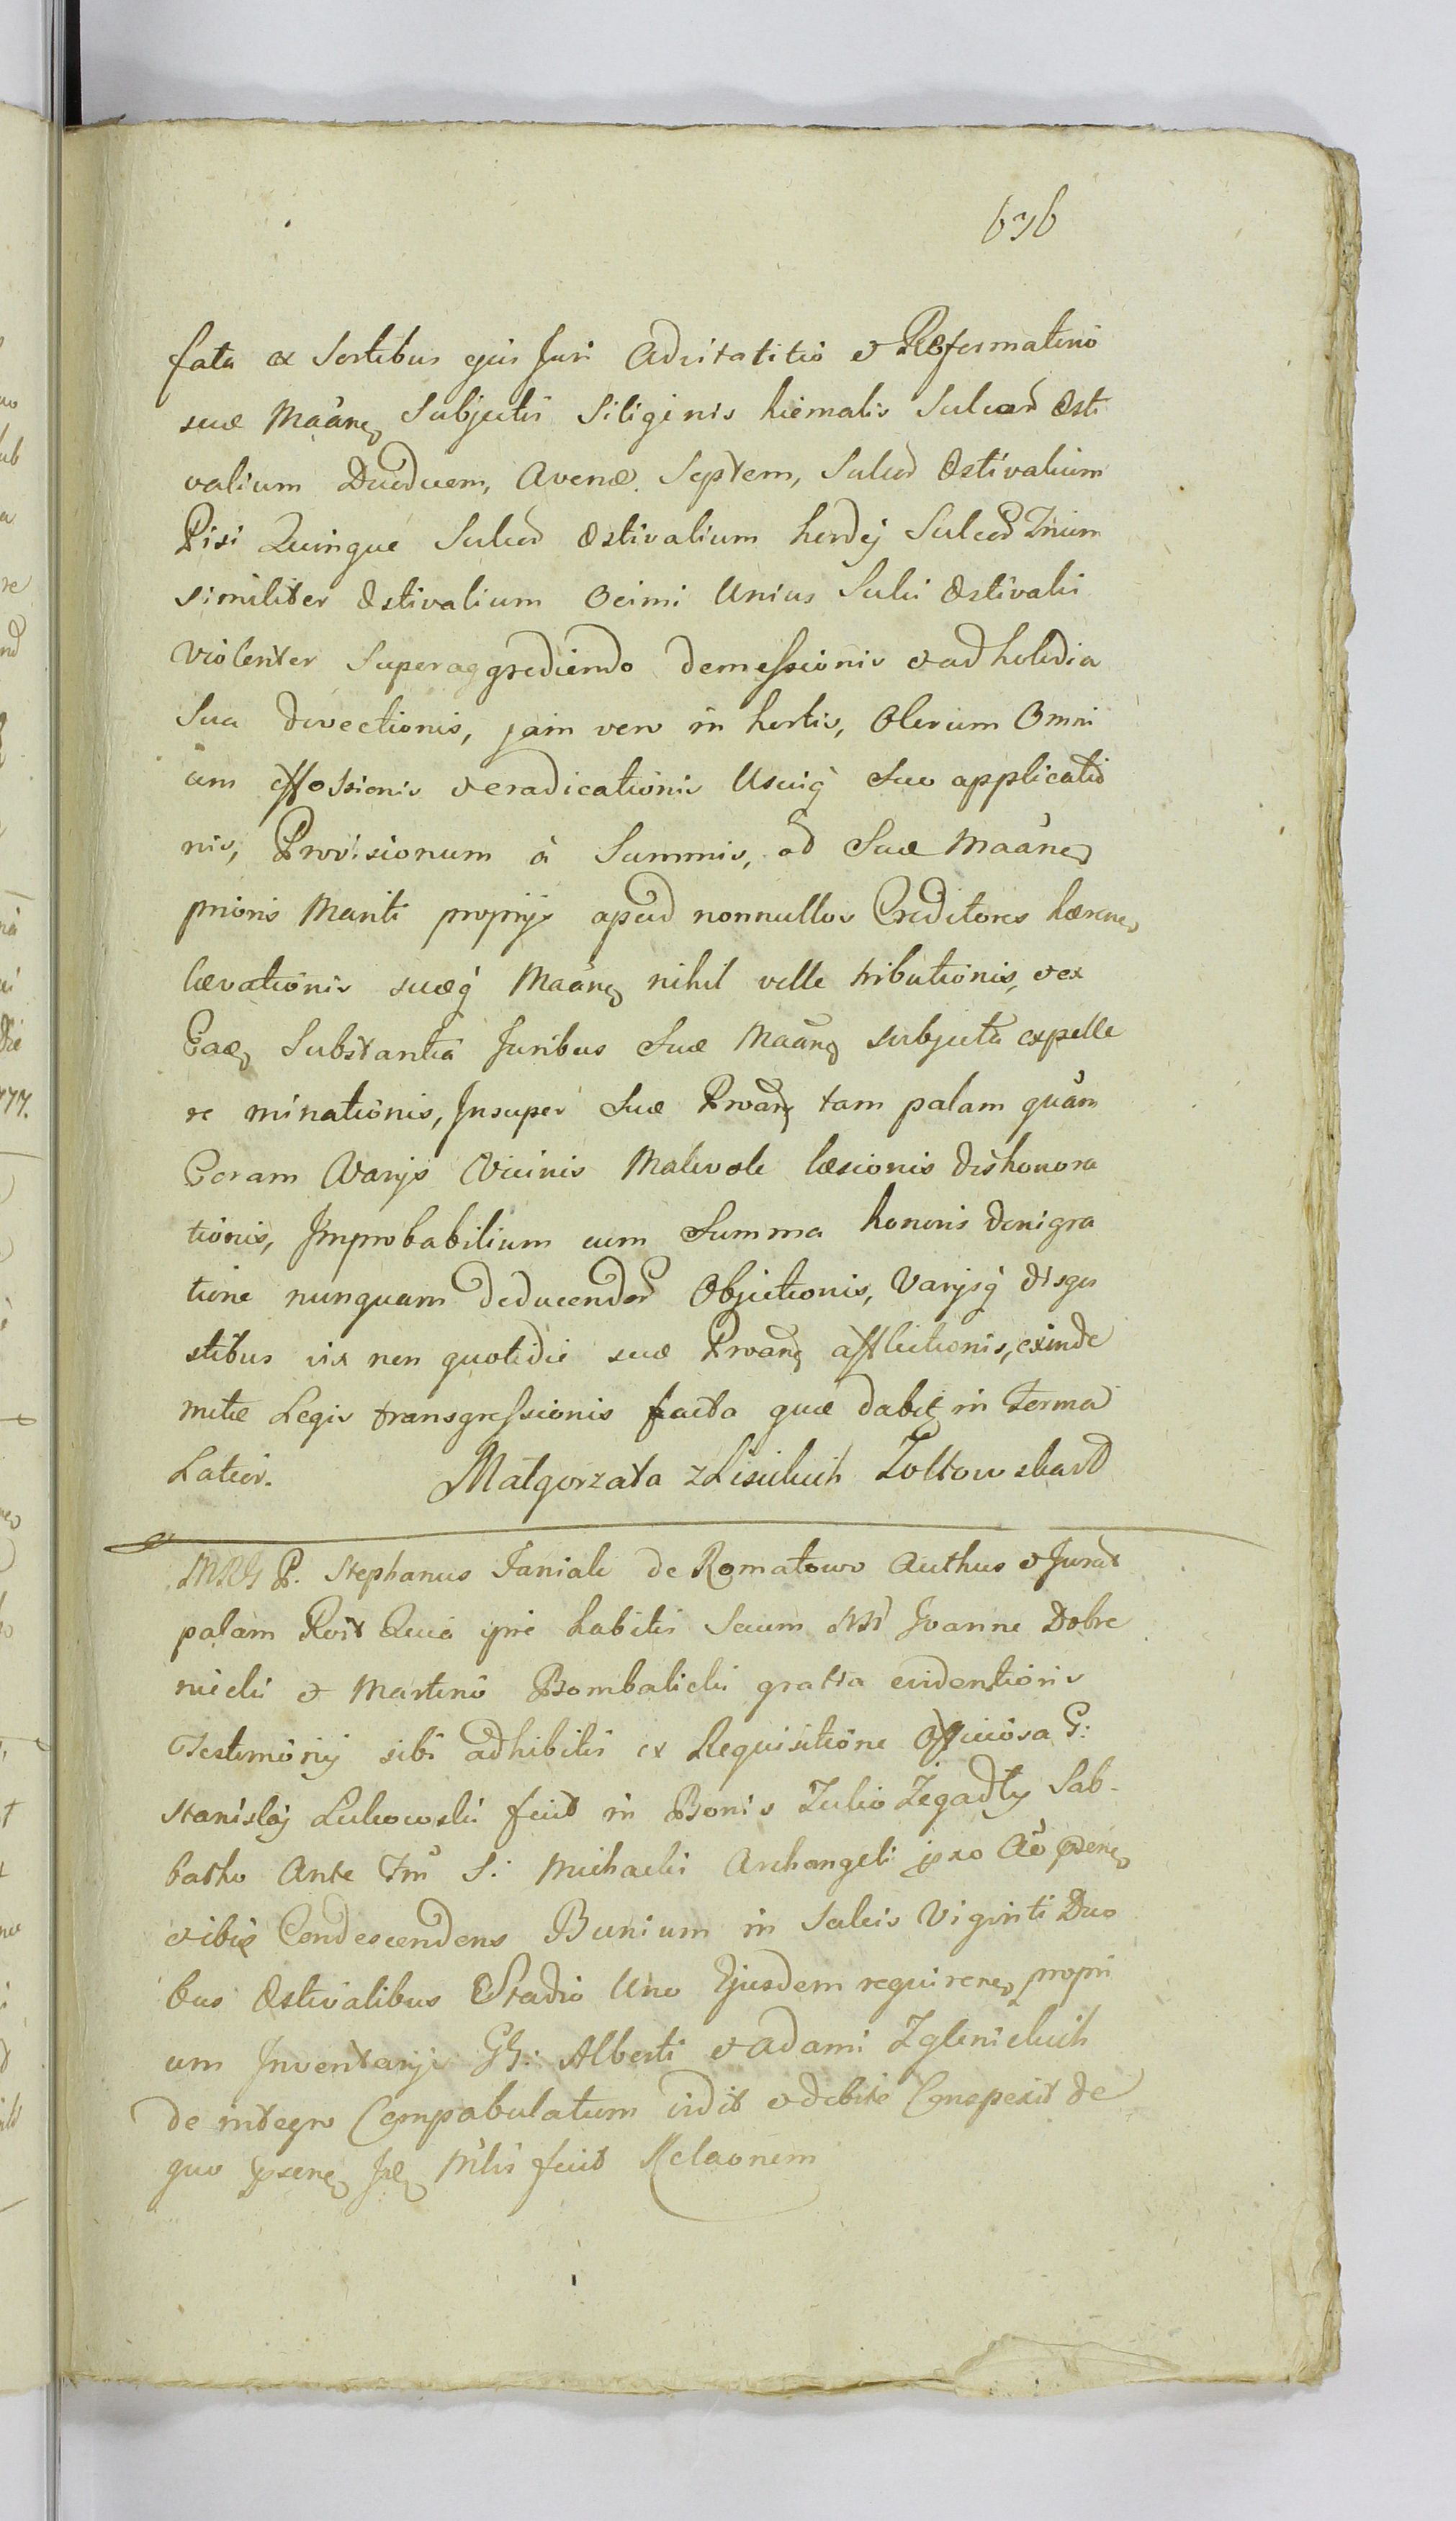 636
fata ex Sortibus ejus Juri Advitatitio et Reformatorio
suæ Maanez Subjectis Siliginis hiemalis Sulcor Æsti
valium Duoduem, Avenæ Septem, Sulcor Æstivalium
Pisi Quinque Sulcor Æstivalium hordej Sulcor Trium
similiter Æstivalium Ocimi Unius Sulci Æstivalis
violenter Superaggrediendo demessionis et ad
Sua devectionis, jam vero in hortis, Olerum Omni
um effossionis et eradicationis Usuiq suo applicatio
nis, Provisionum à Summis, ad Suæ Maanez
prioris Mariti proprijs apud nonnullos Creditores hærenez
lævationis suæq Maanez nihil velle tributionis, et ex
Eaez Substantiâ Juribus Suæ Maanez subjecta expelle
re minationis, Insuper Suæ Proanez tam palam quàm
Coram Varijs Vicinis Malevole læsionis dishonora
tionis, Improbabilium cum Summa honoris denigra
tione nunquam deducendor Objectionis, Varijsq disgu
stibus vix non quotidie suæ Proanez afflictionis, exinde
metæ Legis transgressionis facta quæ dabit in Termo
Latior. Małgorzata z Lisickich Zołtowska
P. Stephanus Janiak de Romatowo Authus et Jurat
palam Roit Quia ipse habitis Secum Joanne Dobre
nicki et Martino Bombalicki gratia evidentioris
Testimonij sibi adhibitis ex Requisitione Officiosa G:
Stanislaj Lukowski fuit in Bonis Zukio Żegadły Sab-
batho Ante Fm S: Michaelis Archangeli pro Ao psenez
et ibiq Condescendens Bunium in Sulcis Viginti Duo
bus Æstivalibus Stadio Uno Ejusdem requirenez propri
um Inventarij GG: Alberti et Adami Zglenickich
de integro Compabulatum vidit et debite Conspexit de
quo psenez fecit Relaonem